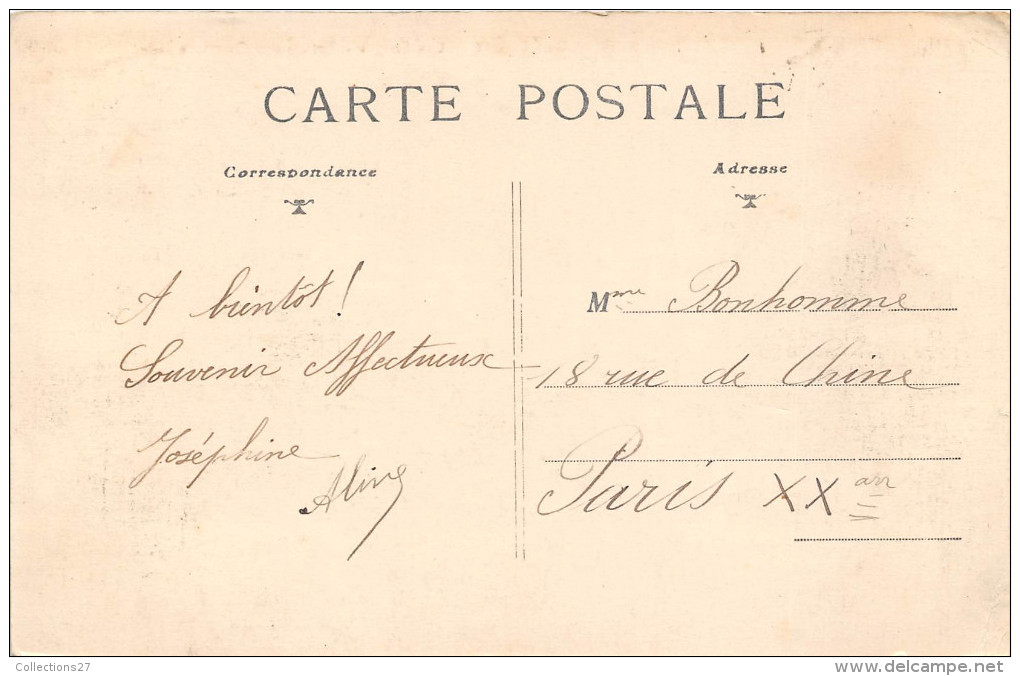 CARTE POSTALE
Correspondance
A bientôt !
Souvenir Affectueux
Joséphine
Aline
Adresse
Mme Bonhomme
18 rue de Chine
Paris XX arr
Collections27
www.delcampe.net